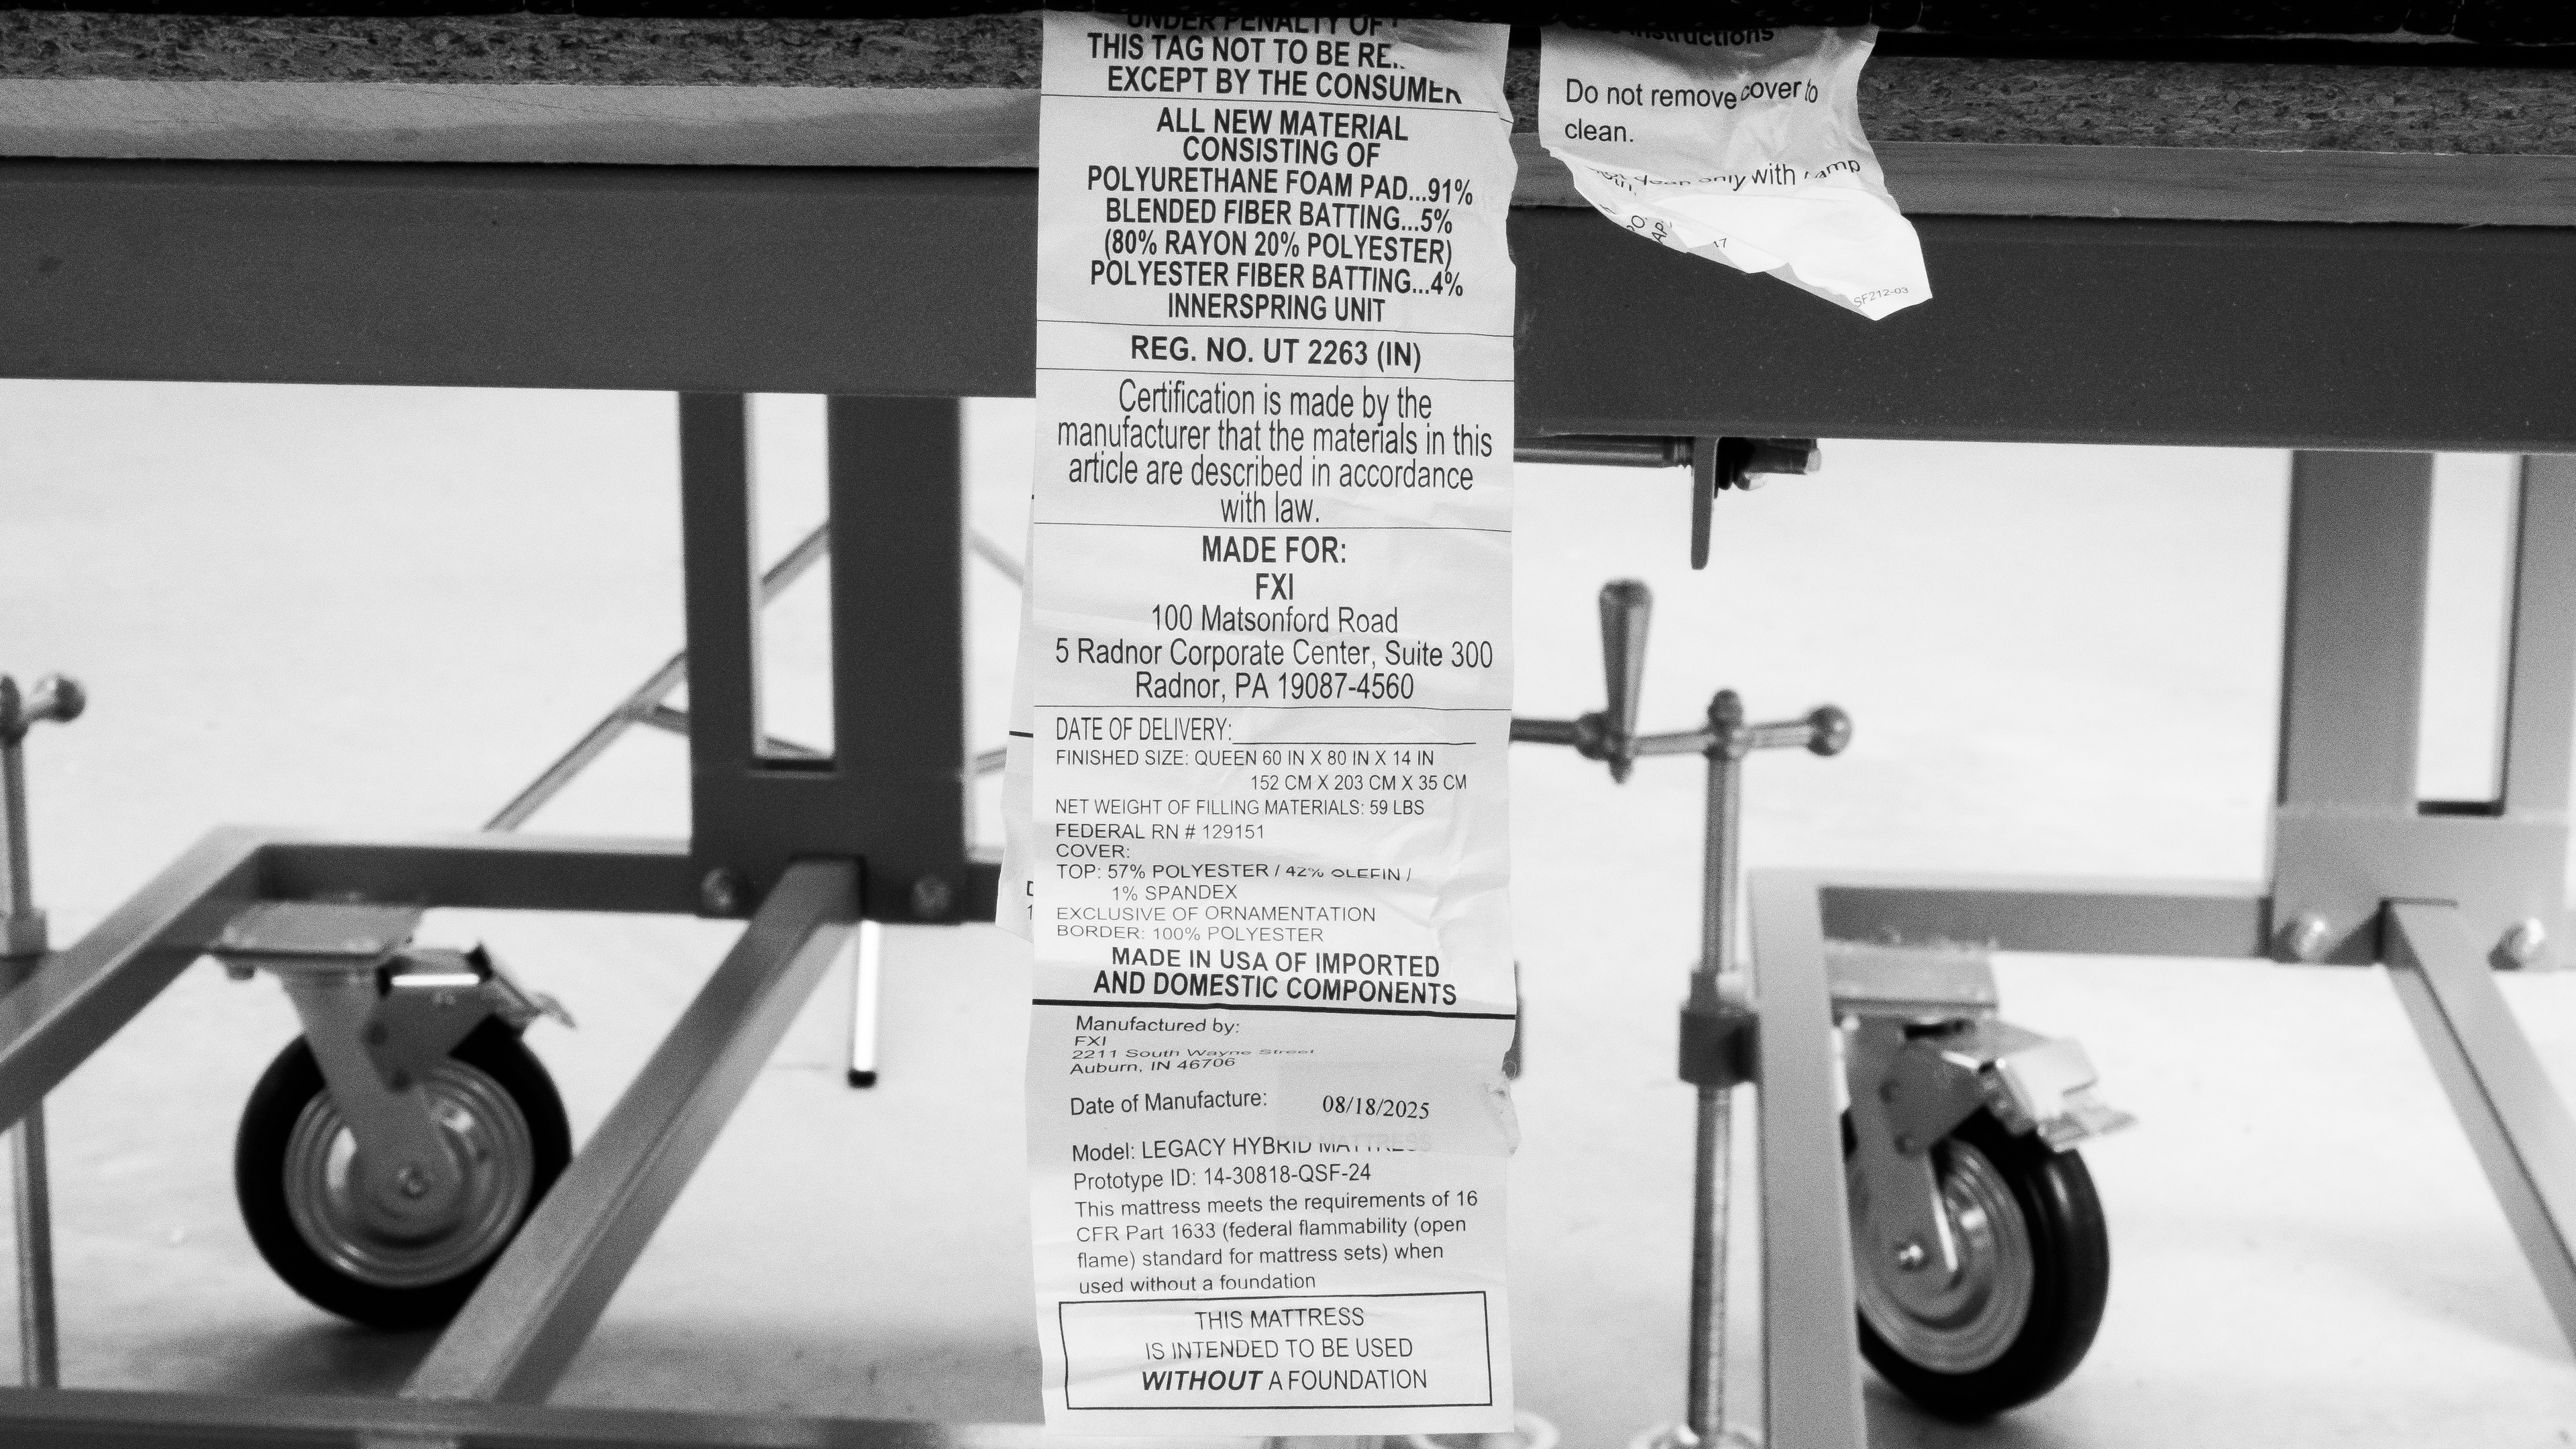 UNDER PENALTY OF
THIS TAG NOT TO BE RE
EXCEPT BY THE CONSUMER
ALL NEW MATERIAL
CONSISTING OF
POLYURETHANE FOAM PAD...91%
BLENDED FIBER BATTING...5%
(80% RAYON 20% POLYESTER)
POLYESTER FIBER BATTING...4%
INNERSPRING UNIT
REG. NO. UT 2263 (IN)
Certification is made by the
manufacturer that the materials in this
article are described in accordance
with law.
MADE FOR:
FXI
100 Matsonford Road
5 Radnor Corporate Center, Suite 300
Radnor, PA 19087-4560
DATE OF DELIVERY:
FINISHED SIZE: QUEEN 60 IN X 80 IN X 14 IN
152 CM X 203 CM X 35 CM
NET WEIGHT OF FILLING MATERIALS: 59 LBS
FEDERAL RN # 129151
COVER:
TOP: 57% POLYESTER / 42% OLEFIN /
1% SPANDEX
EXCLUSIVE OF ORNAMENTATION
BORDER: 100% POLYESTER
MADE IN USA OF IMPORTED
AND DOMESTIC COMPONENTS
Manufactured by:
FXI
2211 South Wayne Street
Auburn, IN 46706
Date of Manufacture: 08/18/2025
Model: LEGACY HYBRID MATTRESS
Prototype ID: 14-30818-QSF-24
This mattress meets the requirements of 16
CFR Part 1633 (federal flammability (open
flame) standard for mattress sets) when
used without a foundation
THIS MATTRESS
IS INTENDED TO BE USED
WITHOUT A FOUNDATION
instructions
Do not remove cover to
clean.
only with
SF212-03